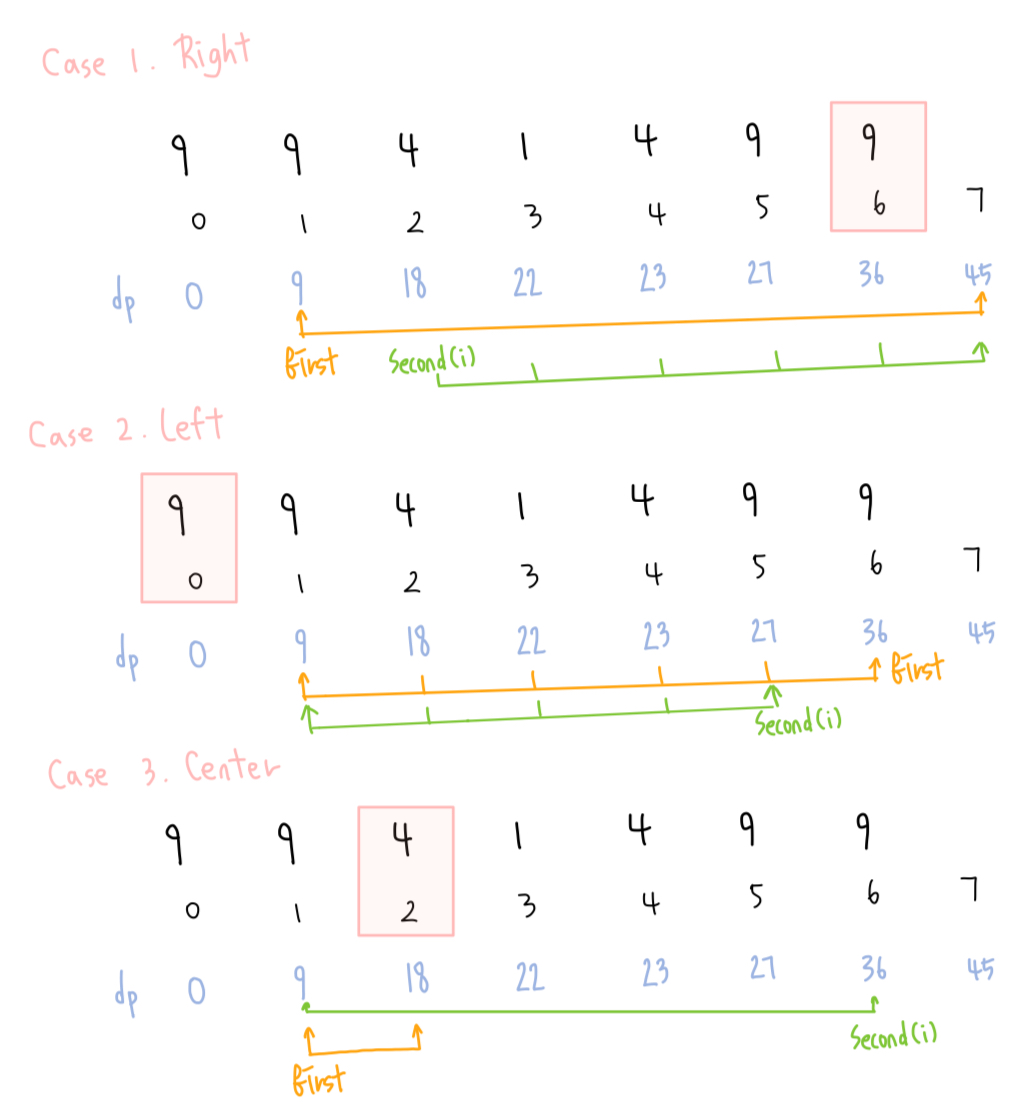 Case 1. Right
9 9 4 1 4 9 9
0 1 2 3 4 5 6 7
dp 0 9 18 22 23 27 36 45
First Second(i)
Case 2. Left
9 9 4 1 4 9 9
0 1 2 3 4 5 6 7
dp 0 9 18 22 23 27 36 45
First
Second(i)
Case 3. Center
9 9 4 1 4 9 9
0 1 2 3 4 5 6 7
dp 0 9 18 22 23 27 36 45
Second(i)
First